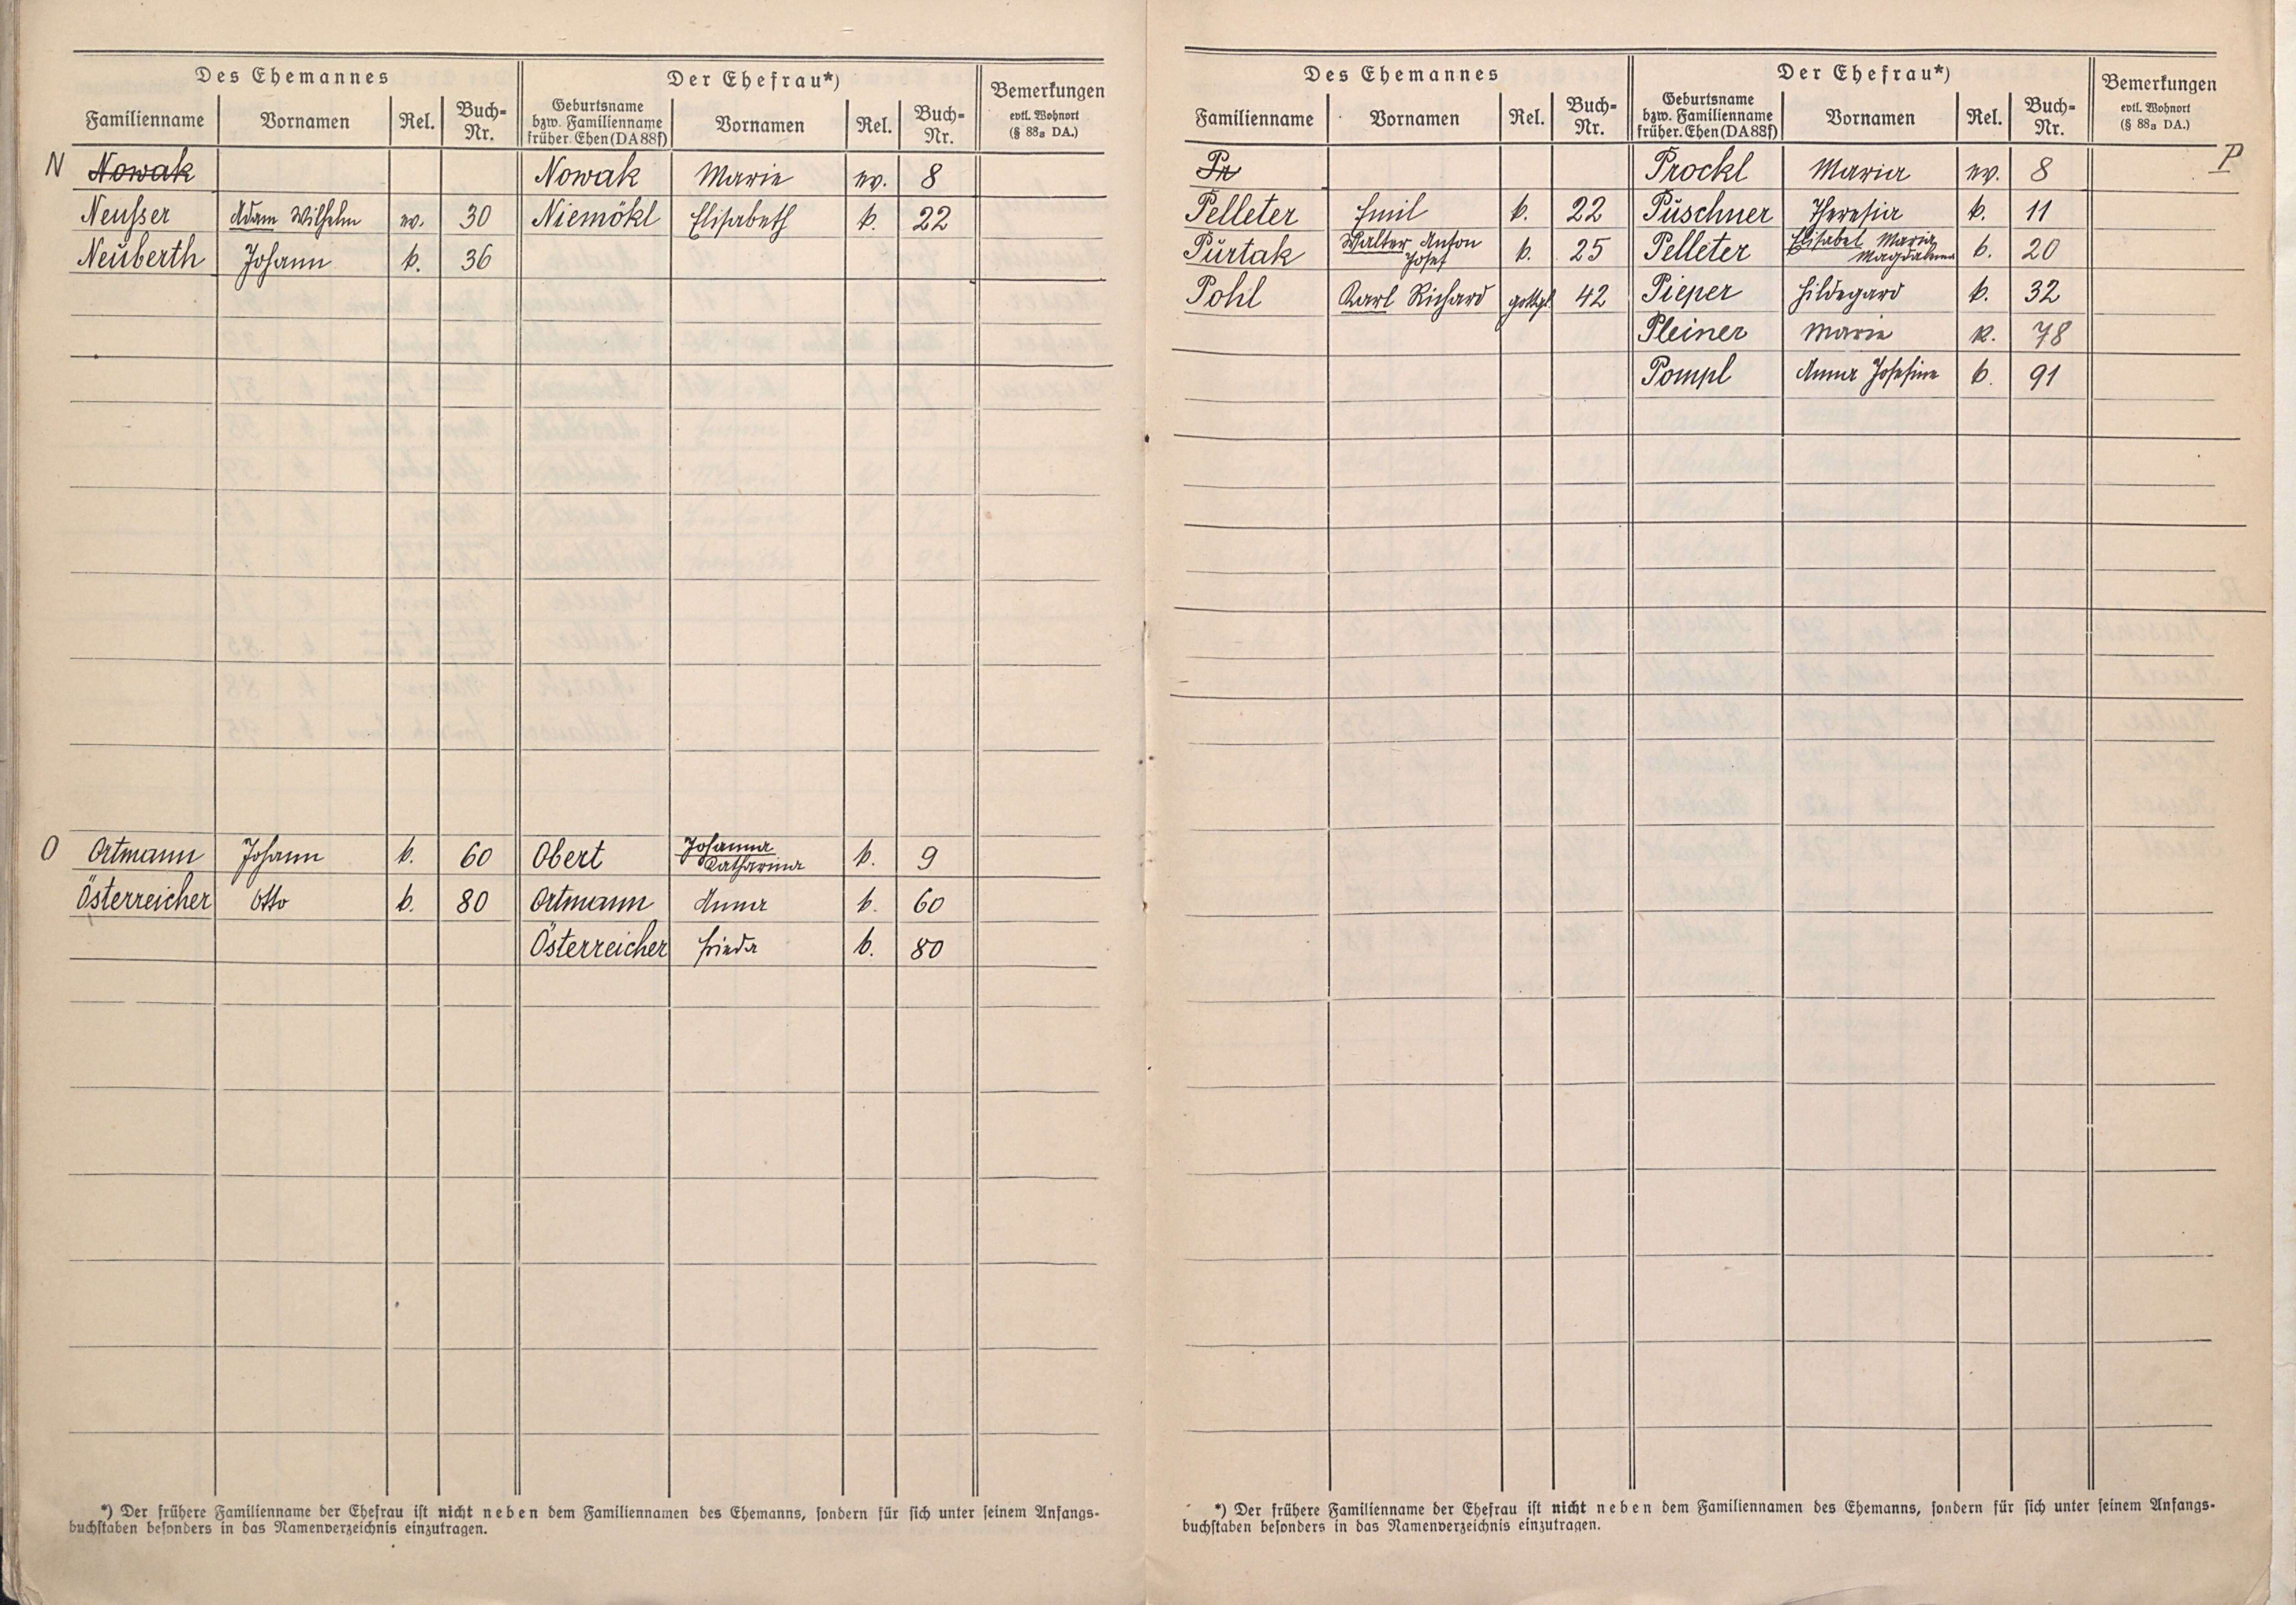 Des Ehemannes Der Ehefrau*) Bemerkungen evtl. Wohnort (§ 88a DA.)
Familienname Vornamen Rel. Buch-Nr. Geburtsname bzw. Familienname früher. Ehen (DA 88f) Vornamen Rel. Buch-Nr.
N Nowak Nowak Marie ev. 8
Neusser Adam Wilhelm ev. 30 Niemökl Elisabeth k. 22
Neuberth Johann k. 36
O Ortmann Johann k. 60 Obert Johanna Katharina k. 9
Österreicher Otto k. 80 Ortmann Anna k. 60
Österreicher Frieda k. 80
*) Der frühere Familienname der Ehefrau ist nicht neben dem Familiennamen des Ehemanns, sondern für sich unter seinem Anfangs-
buchstaben besonders in das Namenverzeichnis einzutragen.
Des Ehemannes Der Ehefrau*) Bemerkungen evtl. Wohnort (§ 88a DA.)
Familienname Vornamen Rel. Buch-Nr. Geburtsname bzw. Familienname früher. Ehen (DA 88f) Vornamen Rel. Buch-Nr.
Pr Prockl Maria ev. 8 P
Pelleter Emil k. 22 Püschner Theresia k. 11
Purtak Walter Anton Josef k. 25 Pelleter Elisabet Maria Magdalena k. 20
Pohl Karl Richard gottgl 42 Pieper Hildegard k. 32
Pleiner Marie k. 78
Pompl Anna Josefine k. 91
*) Der frühere Familienname der Ehefrau ist nicht neben dem Familiennamen des Ehemanns, sondern für sich unter seinem Anfangs-
buchstaben besonders in das Namenverzeichnis einzutragen.